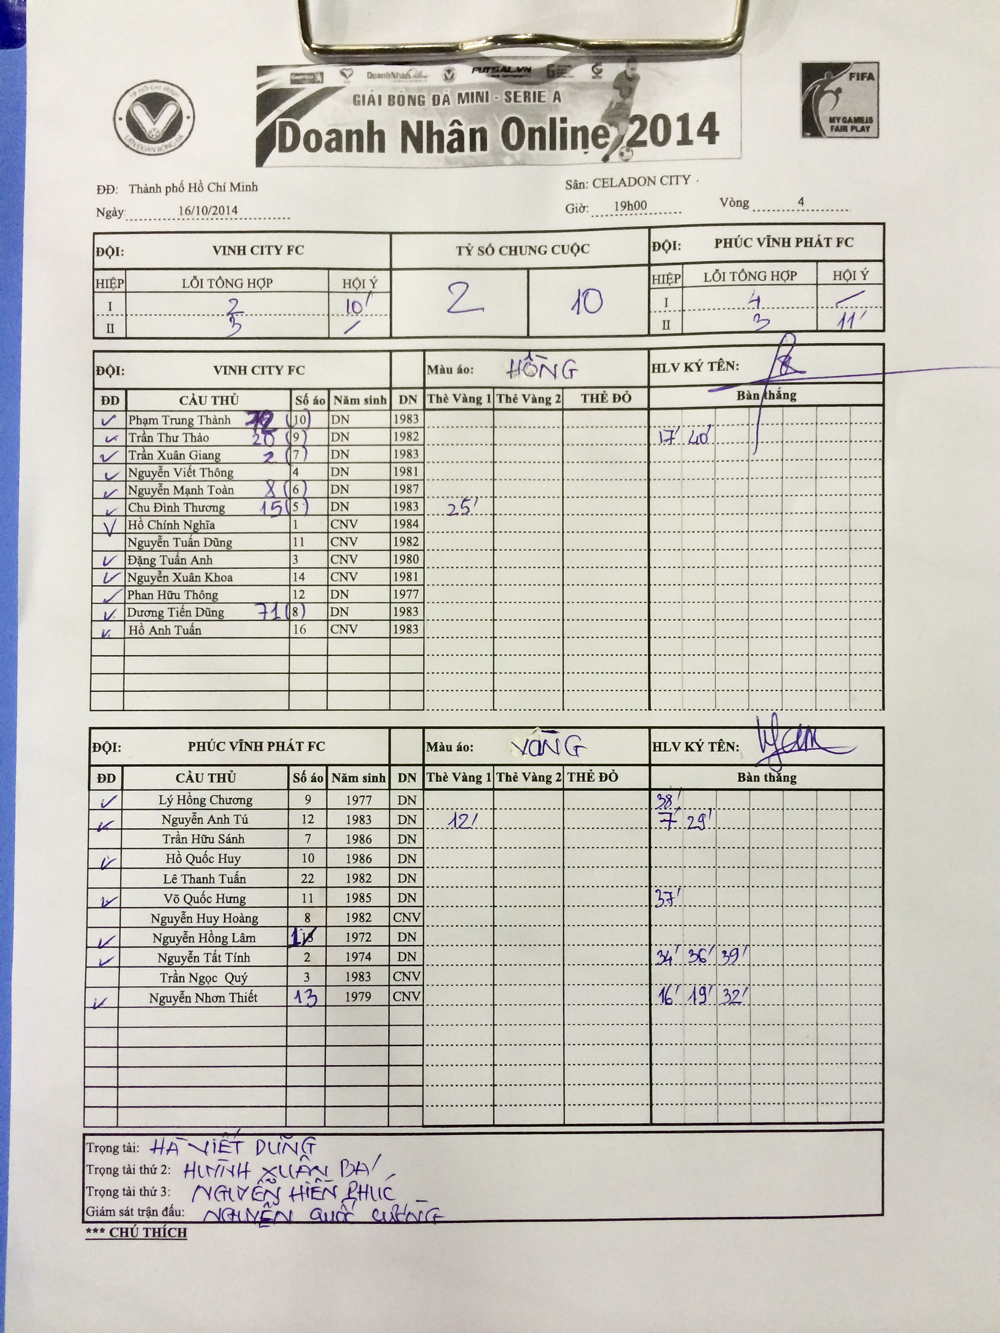 TP HỒ CHÍ MINH
LIÊN ĐOÀN BÓNG ĐÁ
DoanhNhanOnline FUTSAL.VN
GIẢI BÓNG ĐÁ MINI - SERIE A
Doanh Nhân Online 2014
FIFA
MY GAME IS
FAIR PLAY
ĐĐ: Thành phố Hồ Chí Minh Sân: CELADON CITY
Ngày 16/10/2014 Giờ: 19h00 Vòng 4
ĐỘI: VINH CITY FC TỶ SỐ CHUNG CUỘC ĐỘI: PHÚC VĨNH PHÁT FC
HIỆP LỖI TỔNG HỢP HỘI Ý 2 10 HIỆP LỖI TỔNG HỢP HỘI Ý
I 2 10' I 4 /
II 3 / II 3 11'
ĐỘI: VINH CITY FC Màu áo: HỒNG HLV KÝ TÊN:
ĐD CẦU THỦ Số áo Năm sinh DN Thẻ Vàng 1 Thẻ Vàng 2 THẺ ĐỎ Bàn thắng
✓ Phạm Trung Thành (10) DN 1983
✓ Trần Thư Thảo 20 (9) DN 1982 17' 40'
✓ Trần Xuân Giang 2 (7) DN 1983
✓ Nguyễn Viết Thông 4 DN 1981
✓ Nguyễn Mạnh Toàn X (6) DN 1987
✓ Chu Đình Thương 15 (5) DN 1983 25'
✓ Hồ Chính Nghĩa 1 CNV 1984
Nguyễn Tuấn Dũng 11 CNV 1982
✓ Đặng Tuấn Anh 3 CNV 1980
✓ Nguyễn Xuân Khoa 14 CNV 1981
✓ Phan Hữu Thông 12 DN 1977
✓ Dương Tiến Dũng 71 (8) DN 1983
✓ Hồ Anh Tuấn 16 CNV 1983
ĐỘI: PHÚC VĨNH PHÁT FC Màu áo: VÀNG HLV KÝ TÊN:
ĐD CẦU THỦ Số áo Năm sinh DN Thẻ Vàng 1 Thẻ Vàng 2 THẺ ĐỎ Bàn thắng
✓ Lý Hồng Chương 9 1977 DN 38'
✓ Nguyễn Anh Tú 12 1983 DN 12' 7' 29'
Trần Hữu Sánh 7 1986 DN
✓ Hồ Quốc Huy 10 1986 DN
Lê Thanh Tuấn 22 1982 DN
✓ Võ Quốc Hưng 11 1985 DN 37'
Nguyễn Huy Hoàng 8 1982 CNV
✓ Nguyễn Hồng Lâm 1972 DN
✓ Nguyễn Tất Tính 2 1974 DN 34' 36' 39'
Trần Ngọc Quý 3 1983 CNV
✓ Nguyễn Nhơn Thiết 13 1979 CNV 16' 19' 32'
Trọng tài: HÀ VIẾT DŨNG
Trọng tài thứ 2: HUỲNH XUÂN BA
Trọng tài thứ 3: NGUYỄN HIỀN PHÚC
Giám sát trận đấu: NGUYỄN QUỐC CƯỜNG
*** CHÚ THÍCH